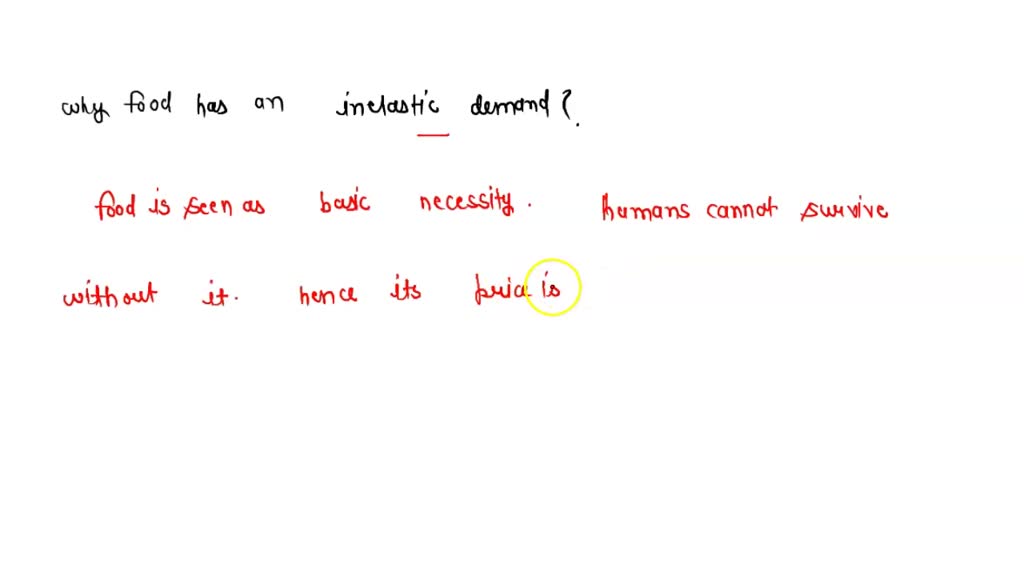 why food has an inelastic demand?
food is seen as basic necessity. humans cannot survive
without it. hence its price is